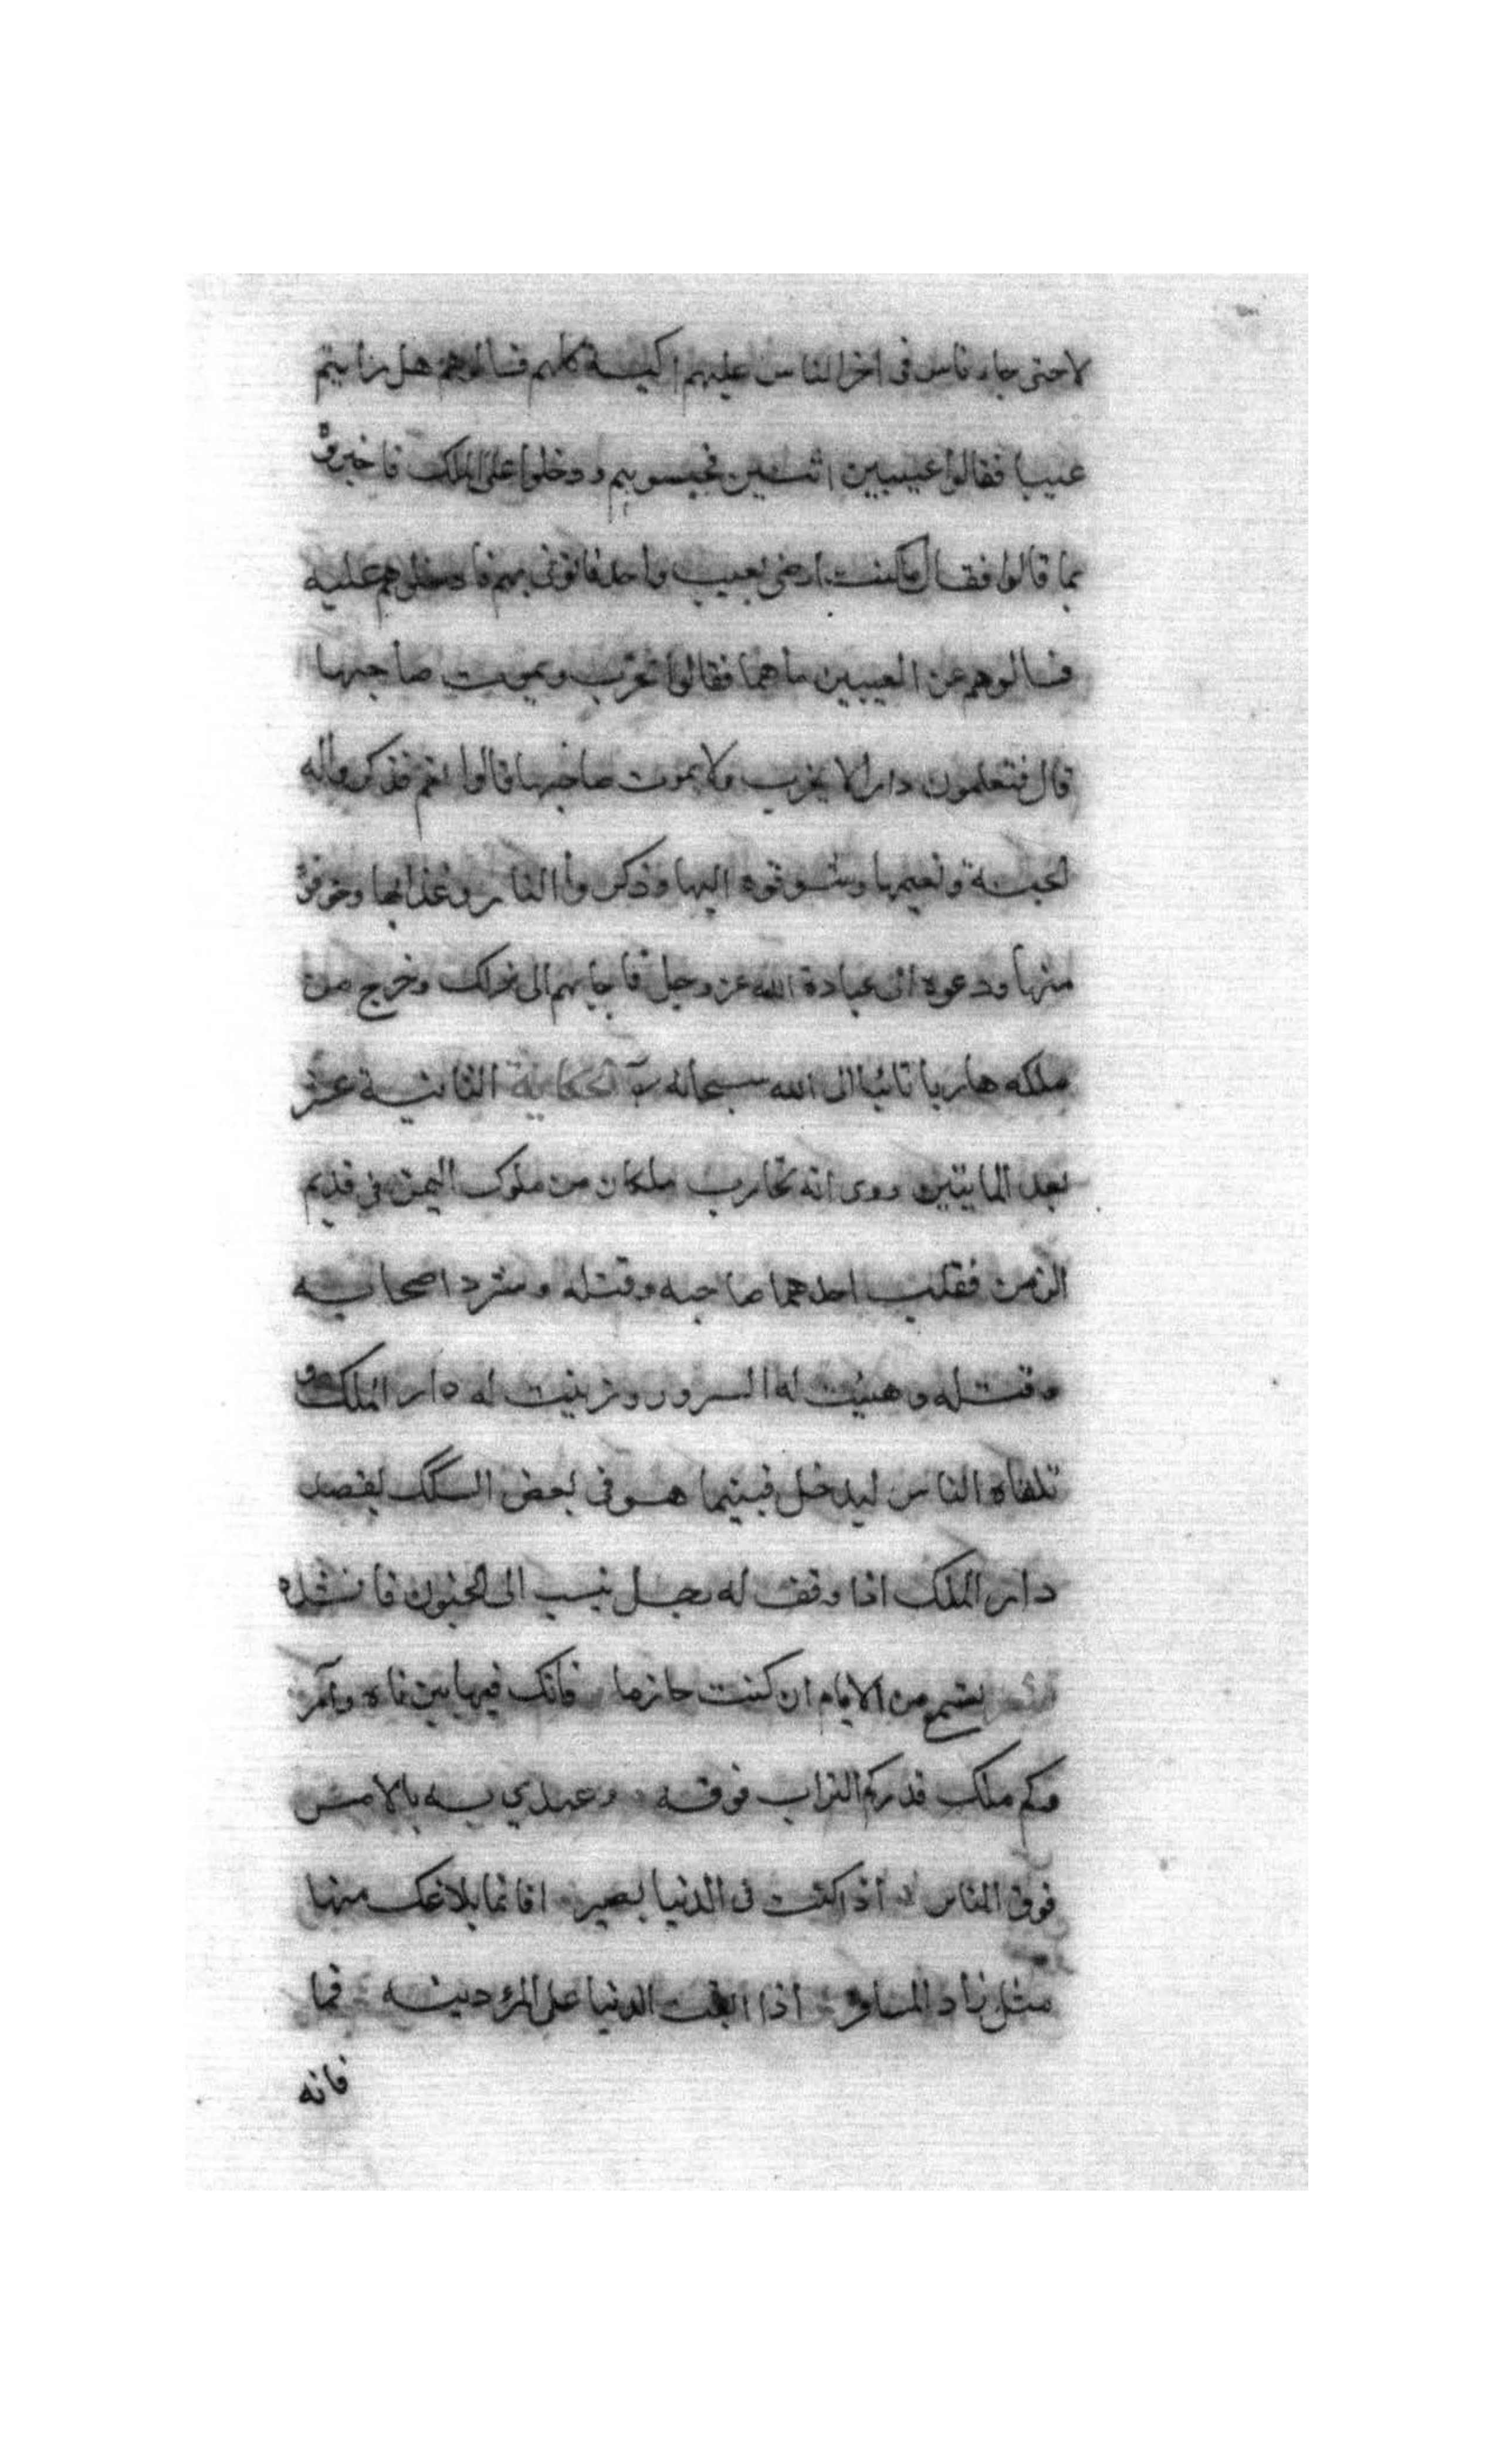 لا حتى جاء ناس فى اخر الناس عليهم اكيسة كلهم فسالوهم هل رايتم
عيبا فقالوا عيبين اثنين فحبسوهم ودخلوا على الملك فاخبروه
بما قالوا فقال ماكنت ارضى بعيب واحد فاتونى بهم فادخلوهم عليه
فسالوهم عن العيبين ما هما فقالوا تخرب ويموت صاحبها
قال فتعلمون دارا لا يخرب ولا يموت صاحبها قالوا نعم فذكروا له
الجنة ونعيمها وشوقوه اليها وذكروا النار وعذابها وخوفوه
منها ودعوه الى عبادة الله عز وجل فاجابهم الى ذلك وخرج من
ملكه هاربا تائبا الى الله سبحانه الحكاية الثانية عشر
بعد المايتين روى انه تحارب ملكان من ملوك اليمن فى قديم
الزمن فغلب احدهما صاحبه وقتله وشرد اصحابه
وقتله وهيئت له السرور وزينت له دار الملك و
تلقاه الناس ليدخل فبينما هو فى بعض السكك يقصد
دار الملك اذا وقف له رجل ينسب الى الجنون فانشده
تمتع من الايام ان كنت حازما فانك فيها بين ناه وآمر
وكم ملك قد ركم التراب فوقه وعهدي به بالامس
فوق المنابر اذا كنت فى الدنيا بصيرا فانما بلاغك منها
مثل زاد المسافر اذا ابقت الدنيا على المرء دينه فما
فاته